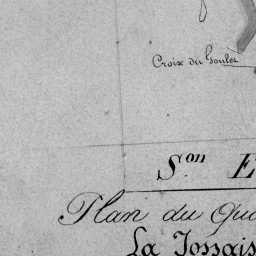 Croix du Goulet
S.on E
Plan du Qua
La Jossais